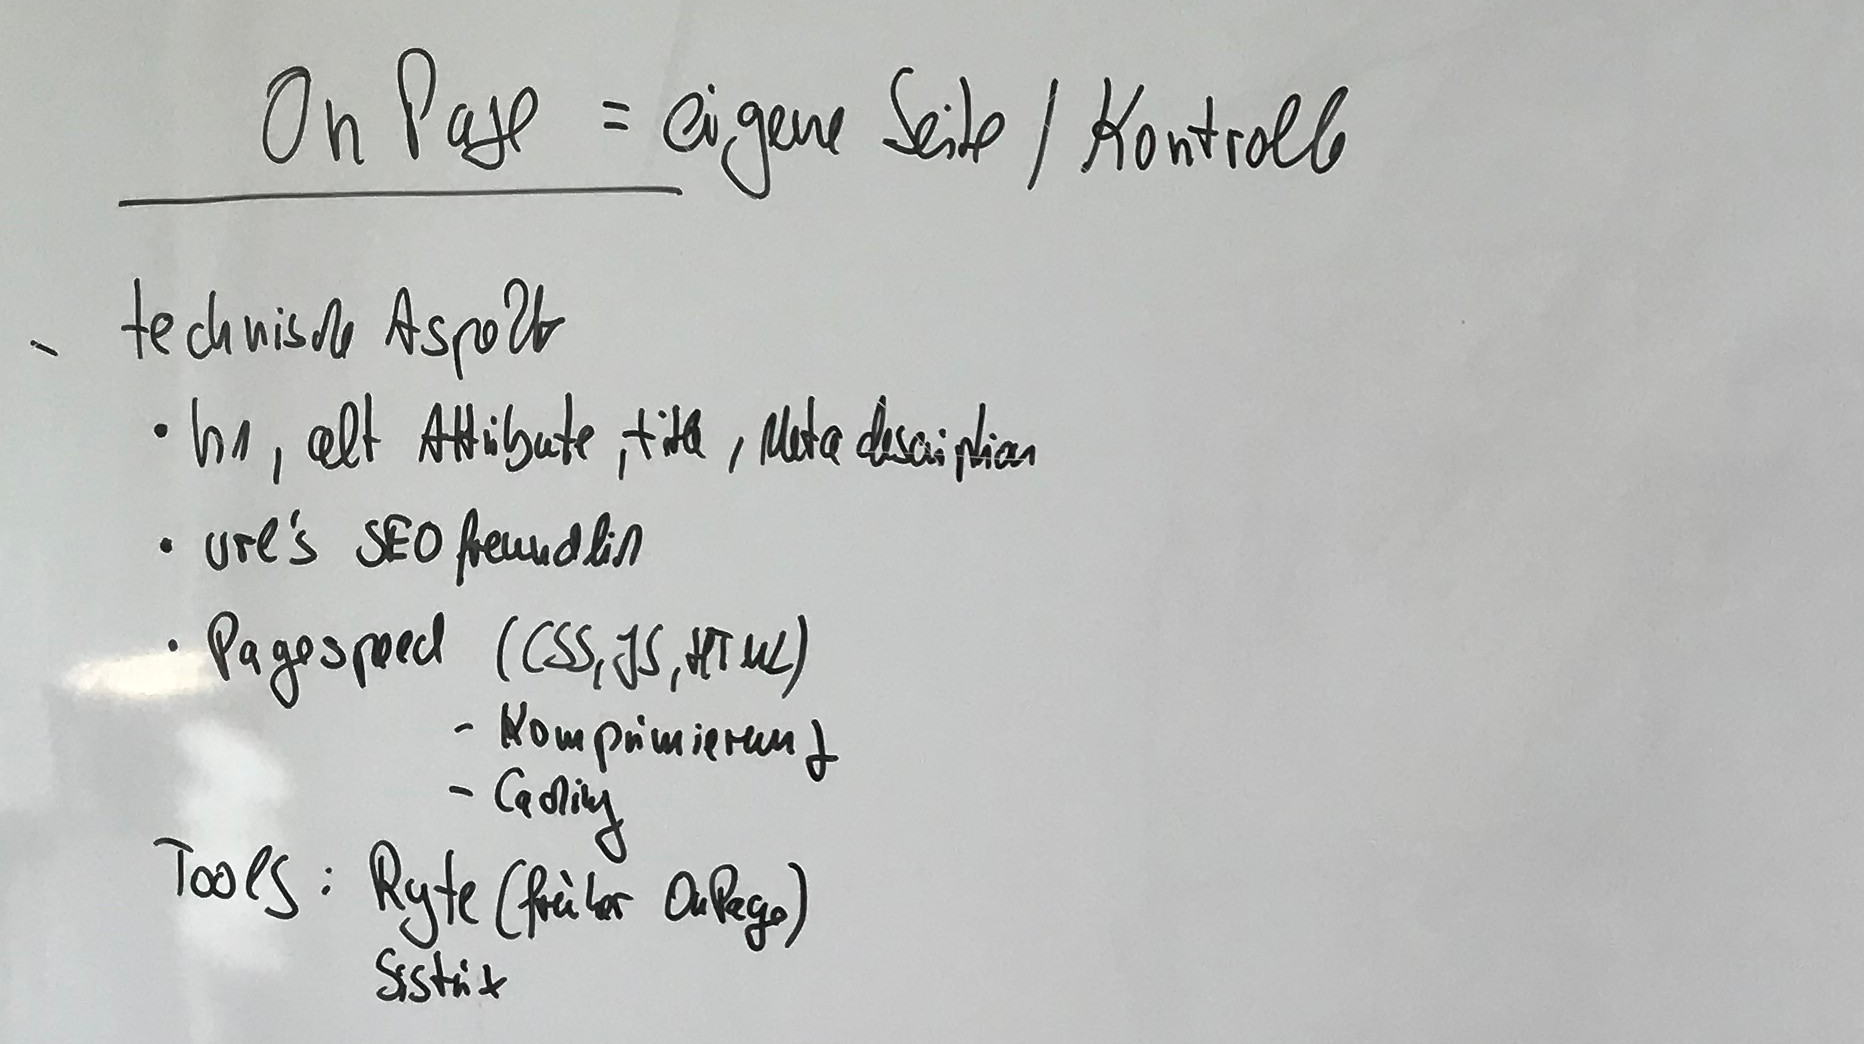 On Page = eigene Seite / Kontrolle
technische Aspekte
• h1, alt Attribute, title, Meta description
• url's SEO freundlich
• Pagespeed (CSS, JS, HTML)
- Komprimierung
- Caching
Tools: Ryte (früher OnPage)
Sistrix